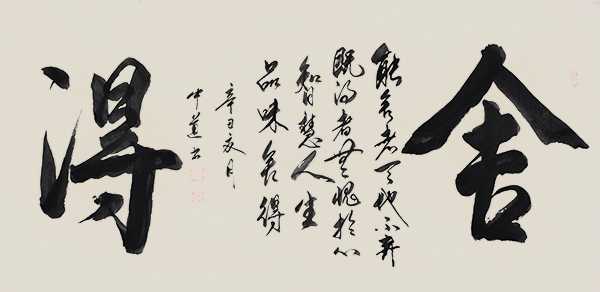 舍
能舍者天地不弃
既得者無愧於心
智慧人生
品味舍得
辛丑夏月
书
得